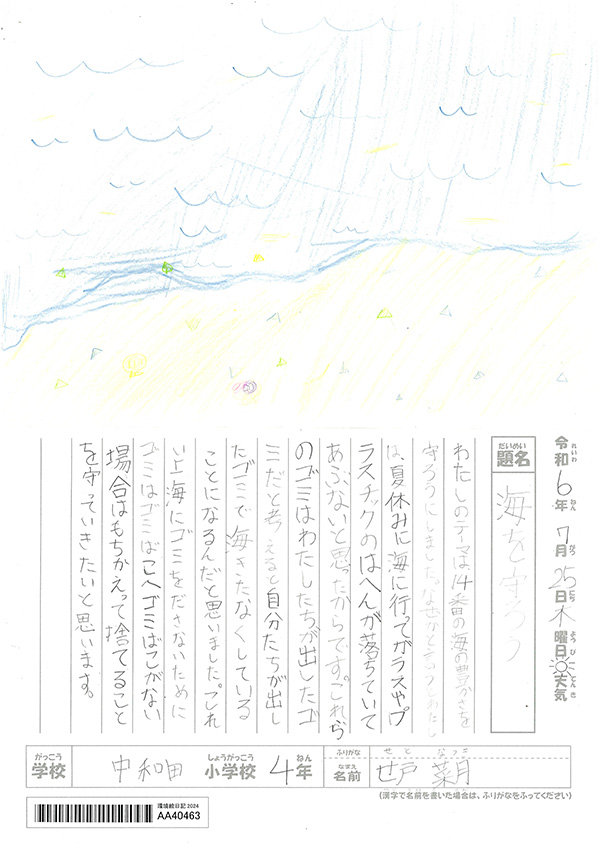 令和6年7月25日木曜日天気
れいわ ねん がつ にち ようび てんき
だいめい
題名
海を守ろう
わたしのテーマは、14番の海の豊かさを
守ろうにしました。なぜかというとわたし
は、夏休みに海に行ってガラスやプ
ラスチックのはへんが落ちていて
あぶないと思ったからです。これら
のゴミはわたしたちが出したゴ
ミだと考えると自分たちが出し
たゴミで海きたなくしている
ことになるんだと思いました。これ
い上海にゴミをださないために
ゴミはゴミばこへゴミばこがない
場合はもちかえって捨てること
を守っていきたいと思います。
がっこう
学校
中和田
しょうがっこう
小学校
4年
ねん
ふりがな
せと なつき
なまえ
名前
世戸 菜月
(漢字で名前を書いた場合は、ふりがなをふってください)
環境絵日記2024
AA40463